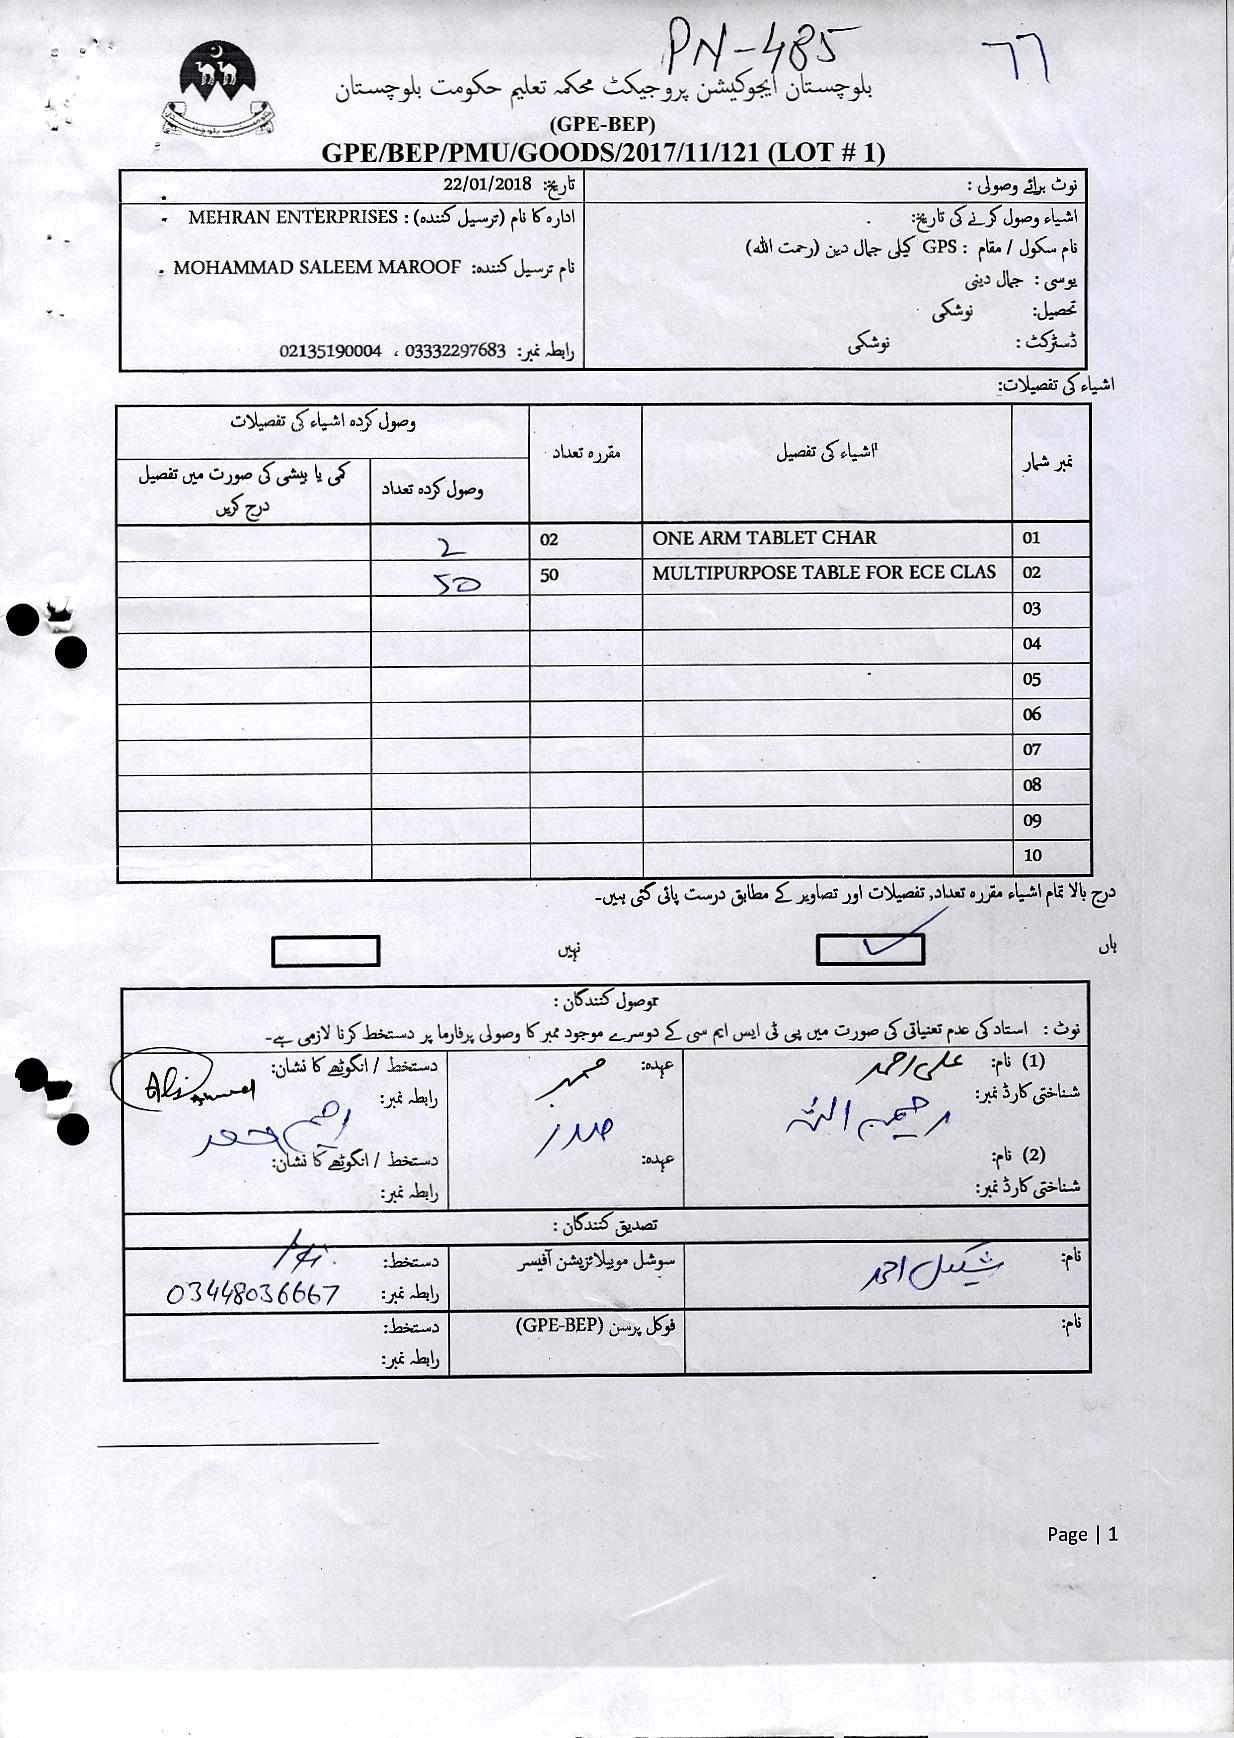 PN-485
77
بلوچستان ایجوکیشن پروجیکٹ محکمہ تعلیم حکومت بلوچستان
(GPE-BEP)
GPE/BEP/PMU/GOODS/2017/11/121 (LOT # 1)
نوٹ برائے وصولی :
اشیاء وصول کرنے کی تاریخ:
نام سکول / مقام : GPS کیلی جمال دین (رحمت اللہ)
یوسی : جمال دینی
تحصیل: نوشکی
ڈسٹرکٹ : نوشکی
تاریخ: 22/01/2018
ادارہ کا نام (ترسیل کنندہ) : MEHRAN ENTERPRISES
نام ترسیل کنندہ: MOHAMMAD SALEEM MAROOF
رابطہ نمبر: 03332297683 ، 02135190004
اشیاء کی تفصیلات:
نمبر شمار اشیاء کی تفصیل مقررہ تعداد وصول کردہ اشیاء کی تفصیلات
وصول کردہ تعداد کمی یا بیشی کی صورت میں تفصیل درج کریں
01 ONE ARM TABLET CHAR 02 2
02 MULTIPURPOSE TABLE FOR ECE CLAS 50 50
03
04
05
06
07
08
09
10
درج بالا تمام اشیاء مقررہ تعداد, تفصیلات اور تصاویر کے مطابق درست پائی گئی ہیں۔
ہاں نہیں
موصول کنندگان :
نوٹ : استاد کی عدم تعنیاتی کی صورت میں پی ٹی ایس ایم سی کے دوسرے موجود ممبر کا وصولی پرفارما پر دستخط کرنا لازمی ہے۔
(1) نام: علی احمد عہدہ: ممبر دستخط / انگوٹھے کا نشان:
شناختی کارڈ نمبر: رابطہ نمبر:
رحیمن اللہ صدر
(2) نام: عہدہ: دستخط / انگوٹھے کا نشان:
شناختی کارڈ نمبر: رابطہ نمبر:
تصدیق کنندگان :
نام: شکیل احمد سوشل موبیلائزیشن آفیسر دستخط:
رابطہ نمبر: 03448036667
نام: فوکل پرسن (GPE-BEP) دستخط:
رابطہ نمبر:
Page | 1